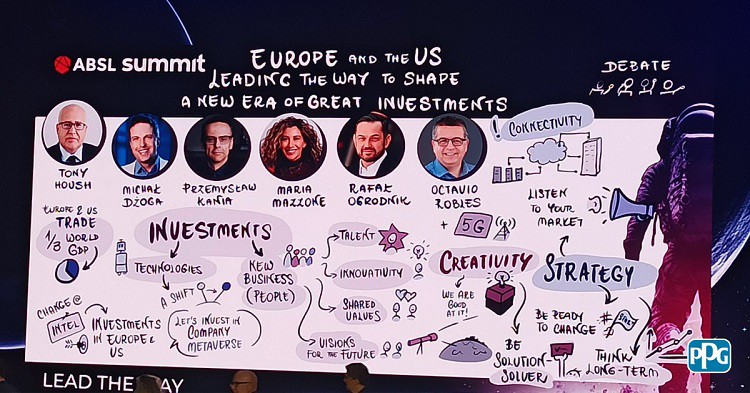 ABSL summit
EUROPE AND THE US
LEADING THE WAY TO SHAPE
A NEW ERA OF GREAT INVESTMENTS
DEBATE
TONY
HOUSH
MICHAŁ
DŻOGA
PRZEMYSŁAW
KANIA
MARIA
MAZZONE
RAFAŁ
OGRODNIK
OCTAVIO
ROBLES
! CONNECTIVITY
LISTEN
TO YOUR
MARKET
+ 5G
EUROPE & US
TRADE
1/3 WORLD
GDP
CHANGE@
INTEL
INVESTMENTS
IN EUROPE &
US
INVESTMENTS
TECHNOLOGIES
A SHIFT
LET'S INVEST IN
COMPANY
METAVERSE
NEW
BUSINESS
(PEOPLE)
TALENT
INNOVATIVITY
SHARED
VALUES
VISIONS
FOR THE FUTURE
CREATIVITY
WE ARE
GOOD
AT IT!
BE
SOLUTION-
SOLVER
STRATEGY
BE READY
TO CHANGE
THINK
LONG-TERM
LEAD THE WAY
PPG